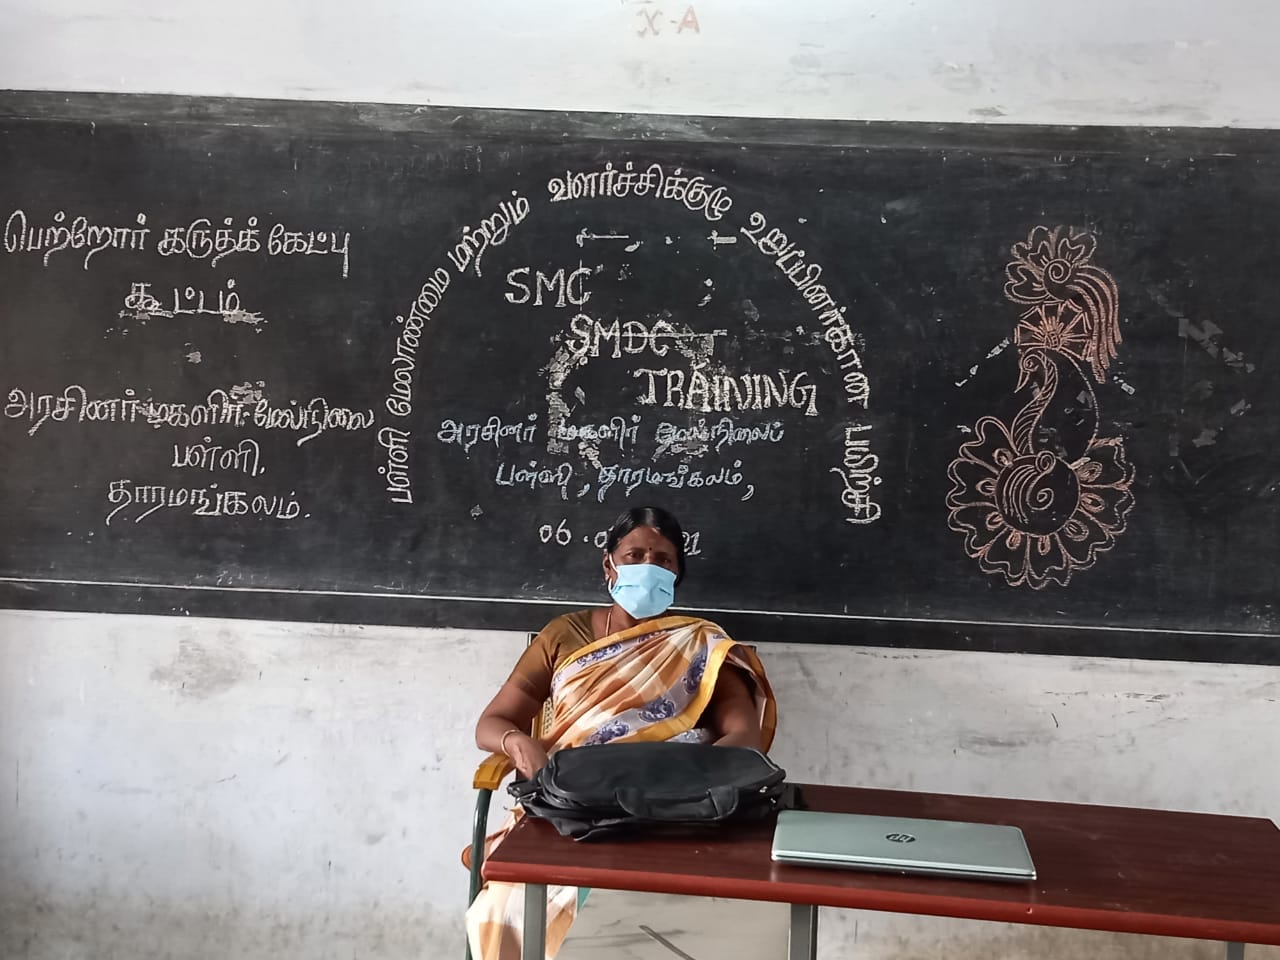 X-A
பெற்றோர் கருத்க் கேட்பு
கூட்டம்
அரசினர் மகளிர் மேல்நிலை
பள்ளி.
தாரமங்கலம்.
பள்ளி மேலாண்மை மற்றும் வளர்ச்சிக்குழு உறுப்பினர்கான பயிற்சி
SMC
SMDC
TRAINING
அரசினர் மகளிர் மேல்நிலைப்
பள்ளி, தாரமங்கலம்,
06.
21
hp